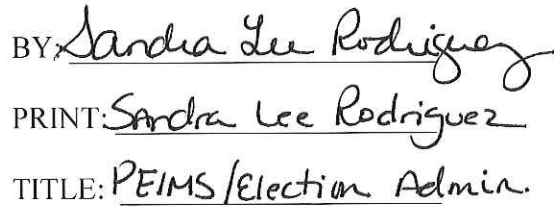 BY: Sandra Lee Rodriguez
PRINT: Sandra Lee Rodriguez
TITLE: PEIMS/Election Admin.